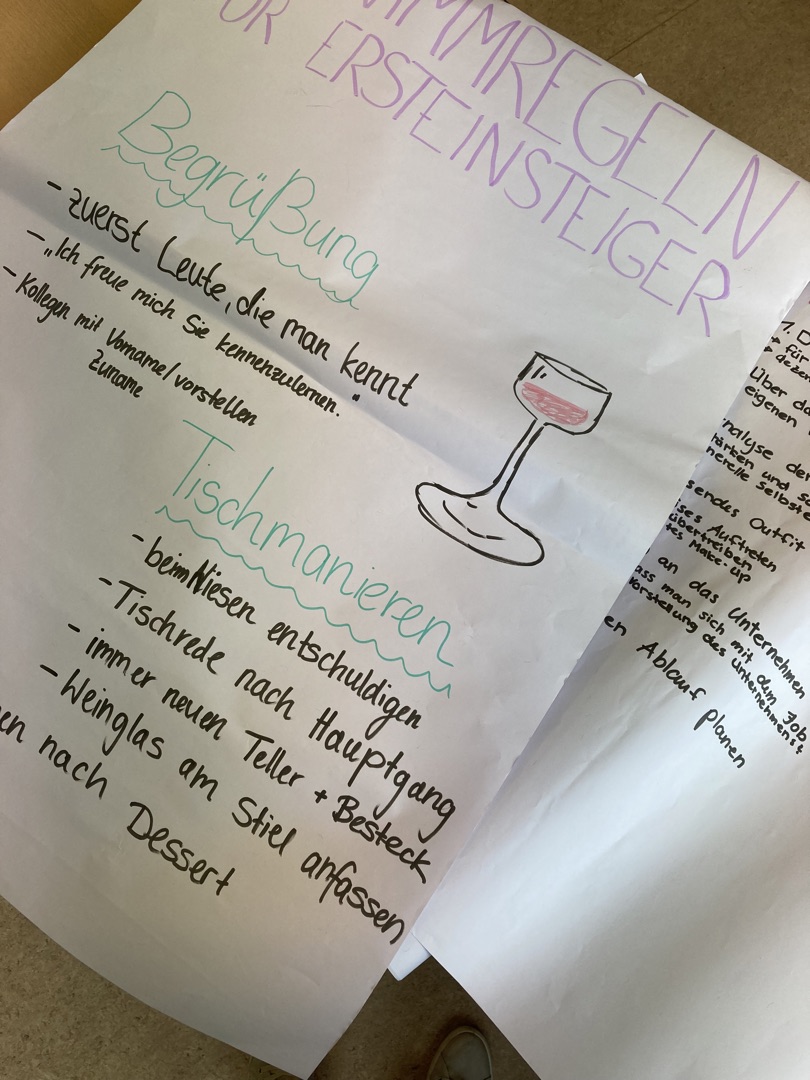 ERSTEINSTEIGER
Begrüßung
- zuerst Leute, die man kennt
- „Ich freue mich Sie kennenzulernen."
- Kollegen mit Vorname/vorstellen
Zuname
Tischmanieren
- beim Niesen entschuldigen
- Tischrede nach Hauptgang
- immer neuen Teller + Besteck
- Weinglas am Stiel anfassen
nach Dessert
1.
für
Über
eigenen
und
Outfit
Auftreten
übertreiben
Make-up
an das Unternehmen
man sich mit dem Job
Vorstellung des Unternehmens!
Ablauf planen